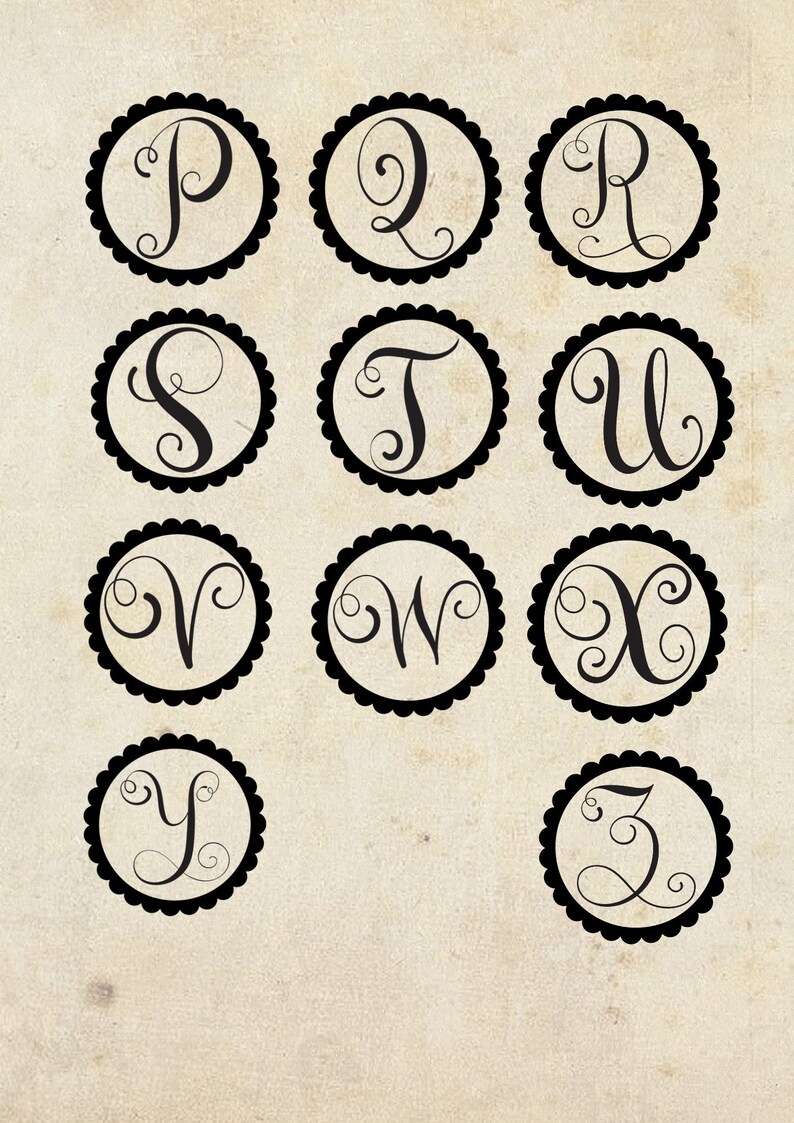 P Q R
S T U
V W X
Y Z